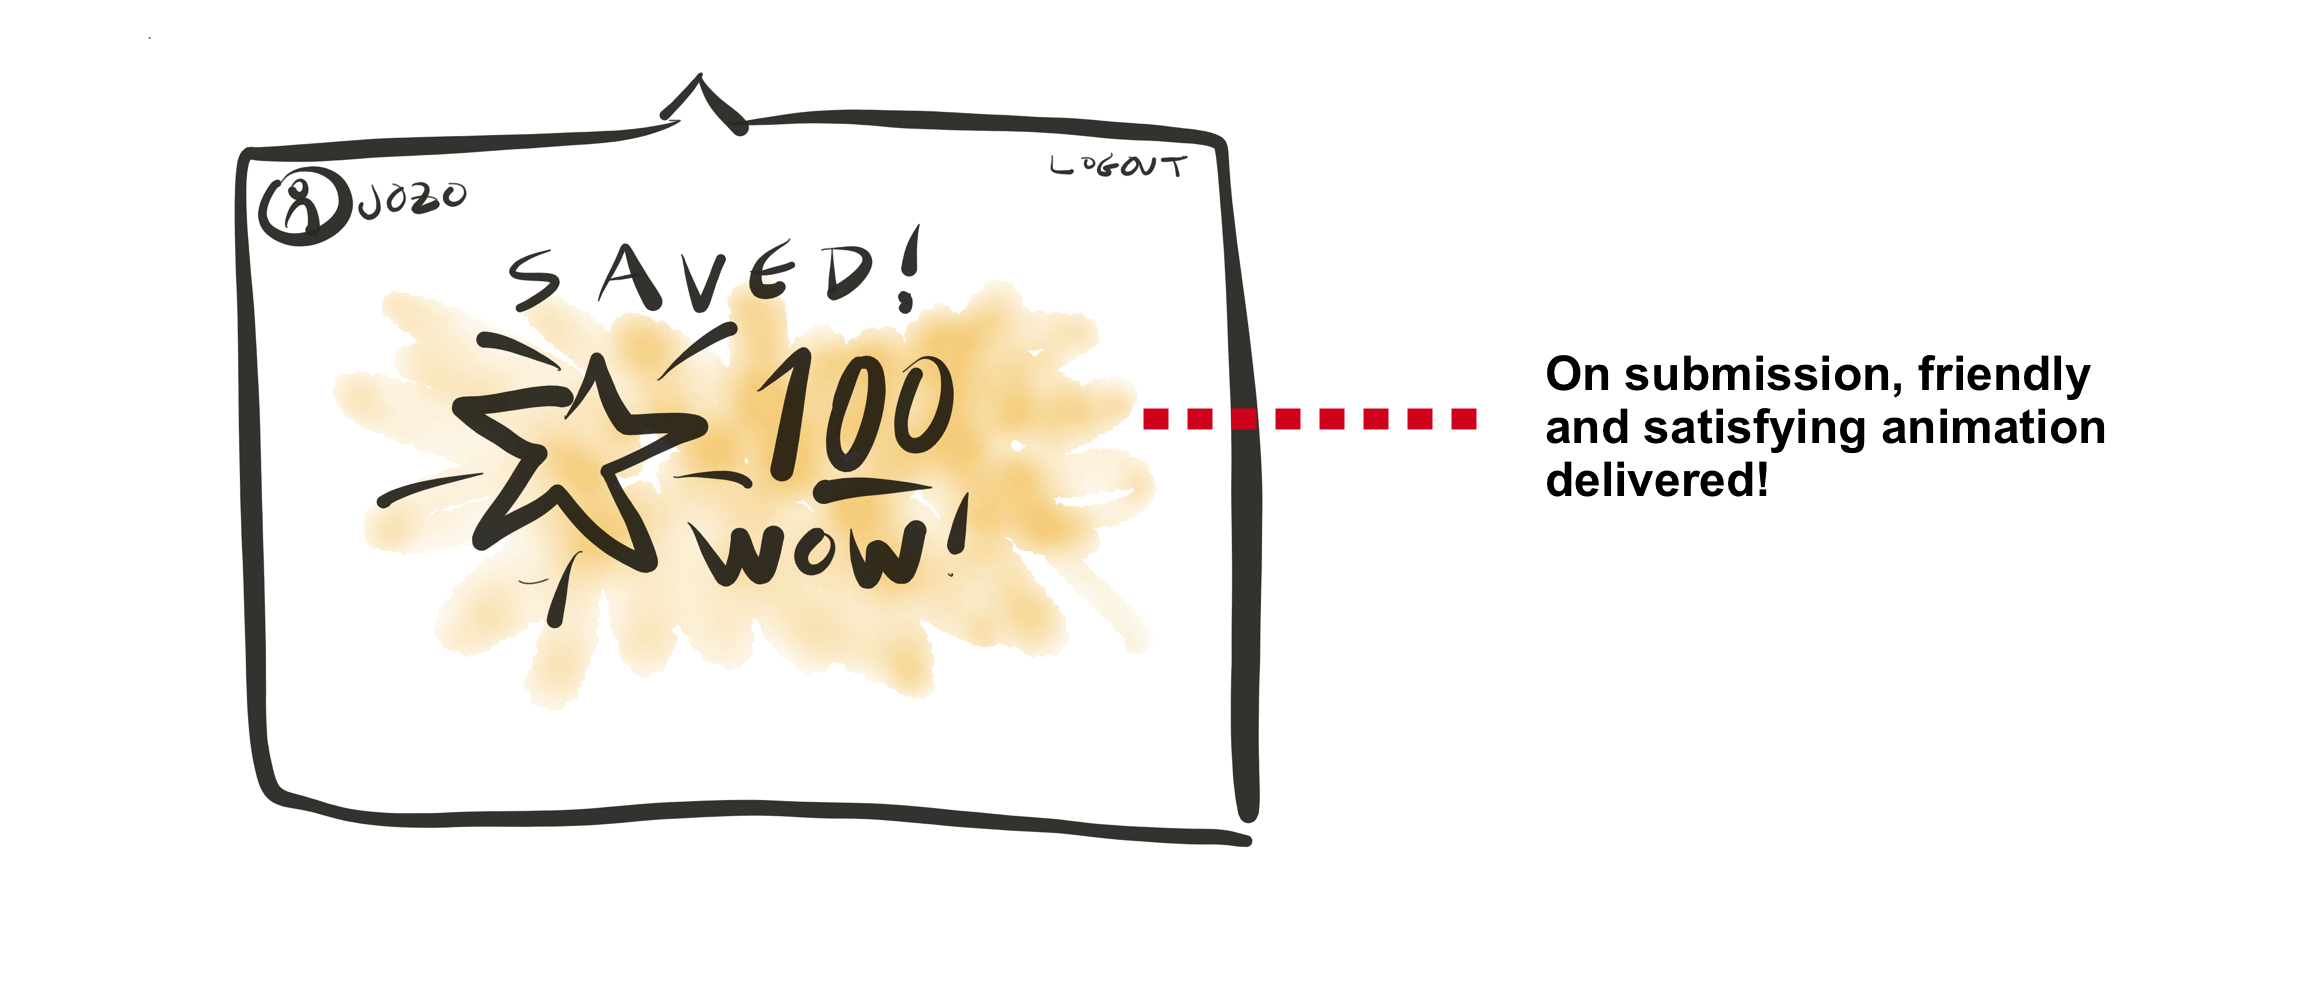 JOZO
LOGOUT
SAVED!
100
WOW!
On submission, friendly
and satisfying animation
delivered!